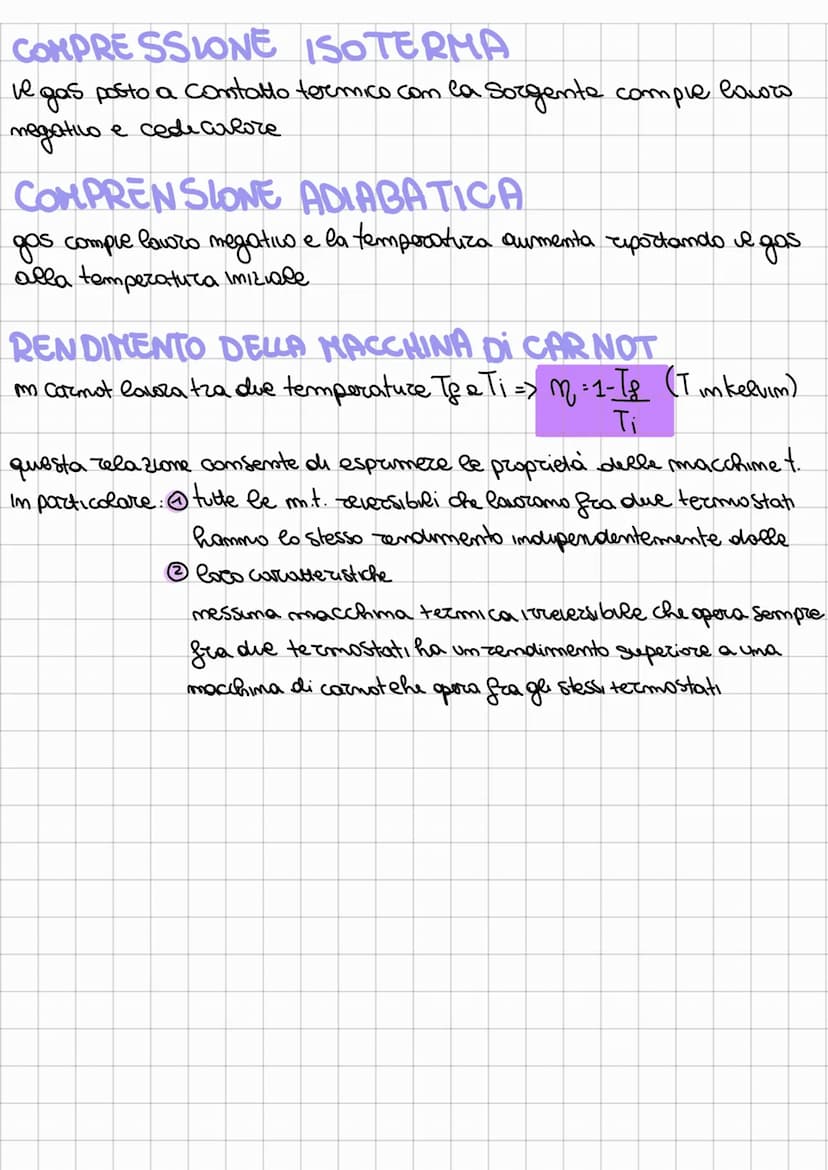 COMPRESSIONE ISOTERMA
il gas posto a contatto termico con la sorgente compie lavoro
negativo e cede calore
COMPRENSIONE ADIABATICA
gas compie lavoro negativo e la temperatura aumenta riportando il gas
alla temperatura iniziale
RENDIMENTO DELLA MACCHINA Di CARNOT
m carnot lavora tra due temperature Tf e Ti => η = 1 - Tf/Ti (T in kelvin)
questa relazione consente di esprimere le proprietà delle macchine t.
In particolare: ① tutte le m.t. reversibili che lavorano fra due termostati
hanno lo stesso rendimento indipendentemente dalle
② loro caratteristiche
nessuna macchina termica irreversibile che opera sempre
fra due termostati ha un rendimento superiore a una
macchina di carnot che opera fra gli stessi termostati